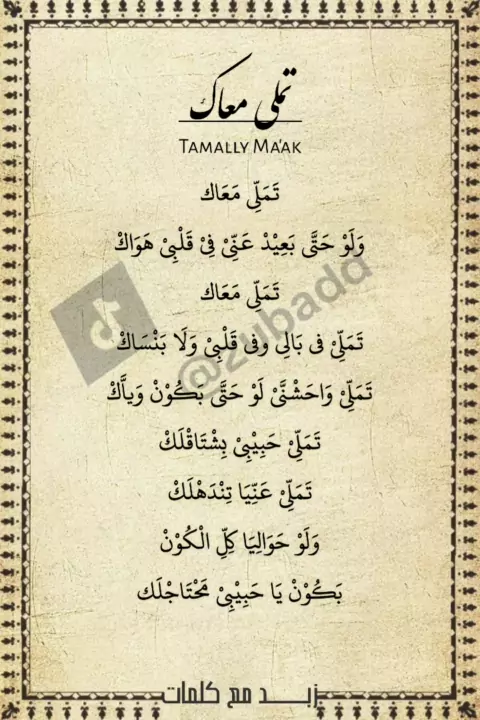 تملى معاك
TAMALLY MA'AK
تَمَلِّى مَعَاك
وَلَوْ حَتَّى بَعِيْدْ عَنِّىْ فِىْ قَلْبِىْ هَوَاكْ
تَمَلِّى مَعَاك
تَمَلِّىْ فى بَالِى وفى قَلْبِىْ وَلَا بَنْسَاكْ
تَمَلِّىْ وَاحَشْنَّىْ لَوْ حَتَّى بَكُوْنْ وَيأَّكْ
تَمَلِّىْ حَبِيْبِىْ بِشْتَاقْلَكْ
تَمَلِّىْ عَنِّيَا تِنْدَهْلَكْ
وَلَوْ حَوَالِيَا كِلِّ الْكُوْنْ
بَكُوْنْ يَا حَبِيْبِىْ مَحْتَاجْلَك
@zubadd
زبد مع كلمات